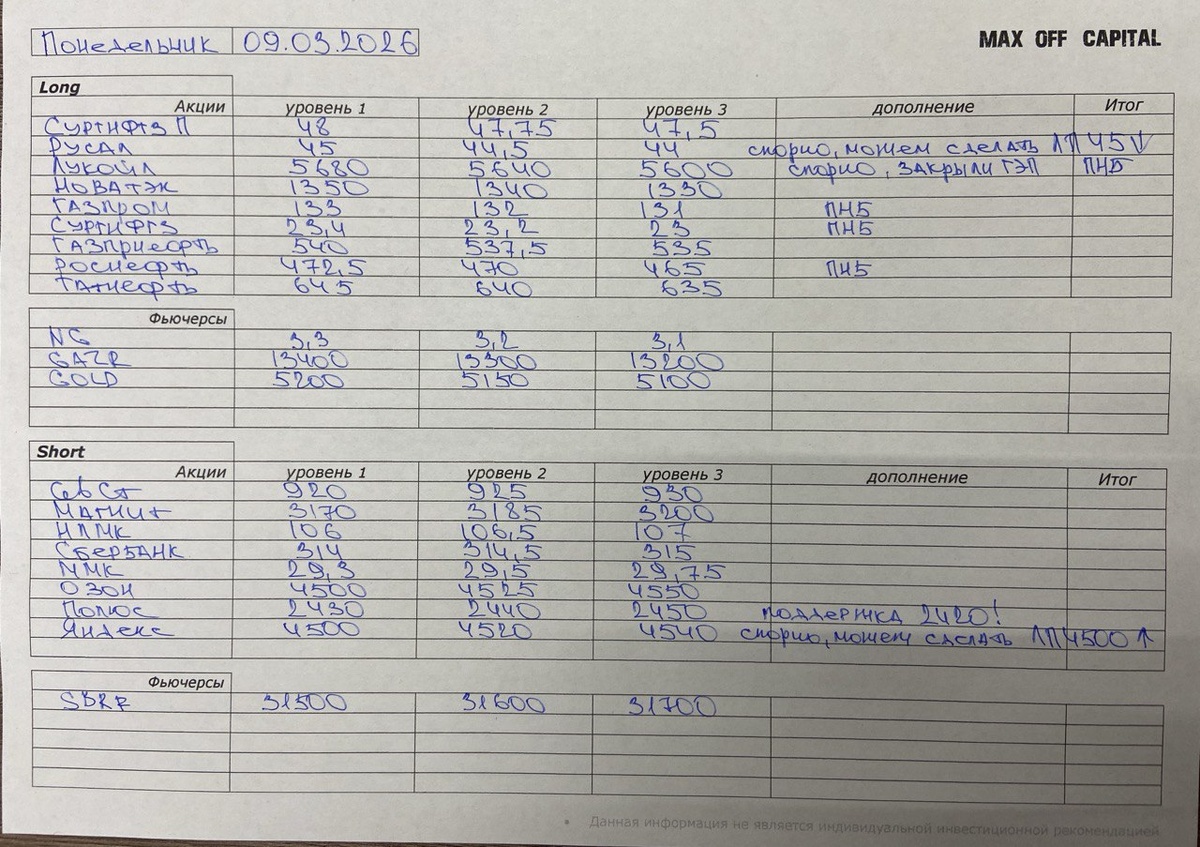 Понедельник 09.03.2026 MAX OFF CAPITAL
Long
Акции уровень 1 уровень 2 уровень 3 дополнение Итог
Сургнфтгз П 48 47,75 47,5
Русал 45 44,5 44 спорно, можем сделать ЛП 45 ↓
Лукойл 5680 5640 5600 спорно, закрыли ГЭП ПНБ
Новатэк 1350 1340 1330
Газпром 133 132 131 ПНБ
Сургнфгз 23,4 23,2 23 ПНБ
Газпрнефть 540 537,5 535
Роснефть 472,5 470 465 ПНБ
Татнефть 645 640 635
Фьючерсы
NG 3,3 3,2 3,1
GAZR 13400 13300 13200
GOLD 5200 5150 5100
Short
Акции уровень 1 уровень 2 уровень 3 дополнение Итог
СевСт 920 925 930
Магнит 3170 3185 3200
НЛМК 106 106,5 107
Сбербанк 314 314,5 315
ММК 29,3 29,5 29,75
Озон 4500 4525 4550
Полюс 2430 2440 2450 поддержка 2420!
Яндекс 4500 4520 4540 спорно, можем сделать ЛП 4500 ↑
Фьючерсы
SBRR 31500 31600 31700
• Данная информация не является индивидуальной инвестиционной рекомендацией